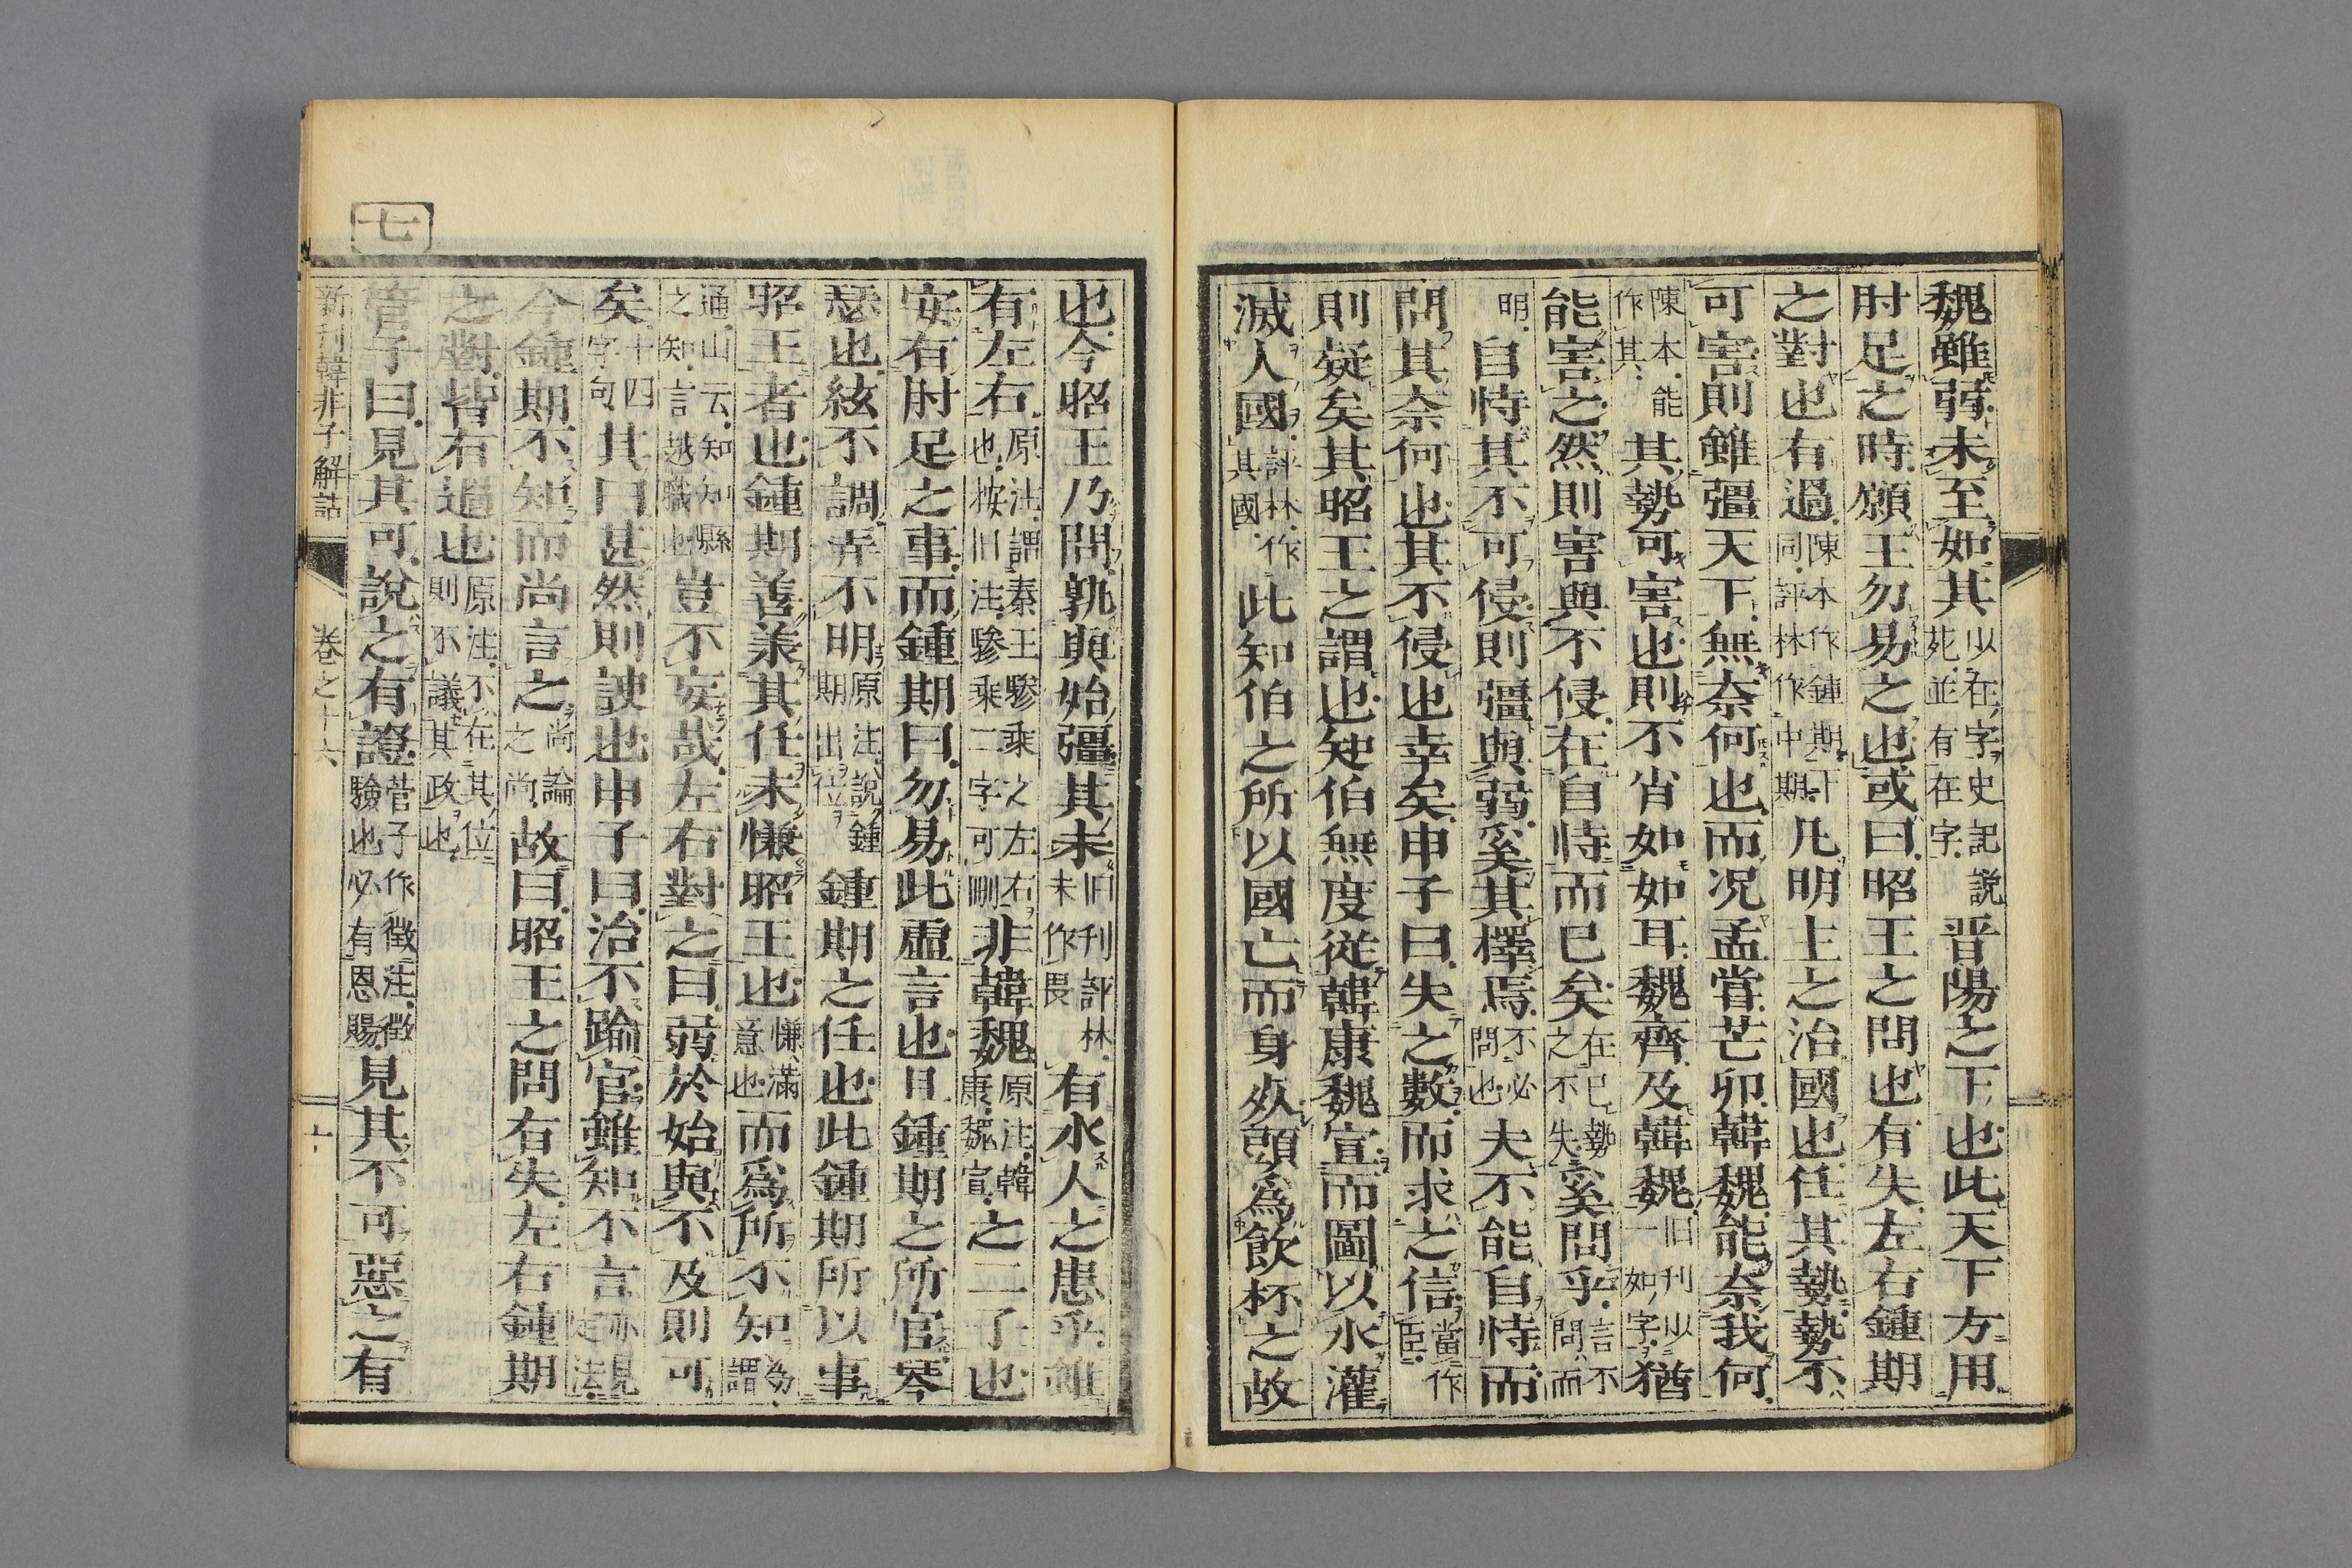 魏雖弱未至如其以在字史記説死並有在字晋陽之下也此天下方用
肘足之時願王勿易之也或曰昭王之問也有失左右鍾期
之對也有過陳本作鍾期評林作中期凡明主之治國也任其勢勢不
可害則雖彊天下無奈何也而况孟甞芒卯韓魏能奈我何
陳本能作其其勢可害也則不肖如如耳魏齊及韓魏旧刊以一如字猶
能害之然則害與不侵在自恃而已矣在已勢之不失奚問乎言不問而
明自恃其不可侵則彊與弱奚其擇焉不必問也夫不能自恃而
問其奈何也其不侵也幸矣申子曰失之數而求之信當作臣
則疑矣其昭王之謂也知伯無度從韓康魏宣而圖以水灌
滅人國評林作其國此知伯之所以國亡而身死頭爲飲杯之故
也今昭王乃問孰與始彊其未旧刊評林未作畏有水人之患乎雖
有左右原注謂秦王驂乘之左右也按旧注驂乘二字可刪非韓魏原注韓康魏宣之二子也
安有肘足之事而鍾期曰勿易此虛言也且鍾期之所官琴
瑟也絃不調弄不明原注説鍾期出位鍾期之任也此鍾期所以事
昭王者也鍾期善承其任未慊昭王也慊滿意也而爲所不知爲謂
通山云知知縣之知言越職也豈不妄哉左右對之曰弱於始與不及則可
矣十四字句其曰甚然則諛也申子曰治不踰官雖知不言亦見定法
今鍾期不知而尚言之尚論之尚故曰昭王之問有失左右鍾期
之對皆有過也原注不在其位則不議其政也
管子曰見其可説之有證菅子作徴注徴驗也必有恩賜見其不可惡之有
新刊韓非子解詁 卷之十六 十
七